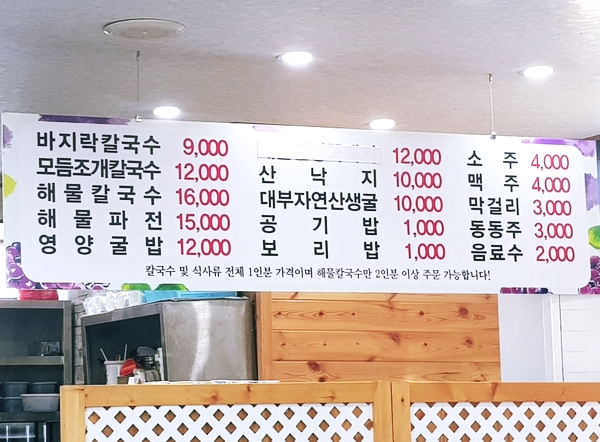 바지락칼국수 9,000
모듬조개칼국수 12,000
해물칼국수 16,000
해물파전 15,000
영양굴밥 12,000
12,000
산낙지 10,000
대부자연산생굴 10,000
공기밥 1,000
보리밥 1,000
소주 4,000
맥주 4,000
막걸리 3,000
동동주 3,000
음료수 2,000
칼국수 및 식사류 전체 1인분 가격이며 해물칼국수만 2인분 이상 주문 가능합니다!